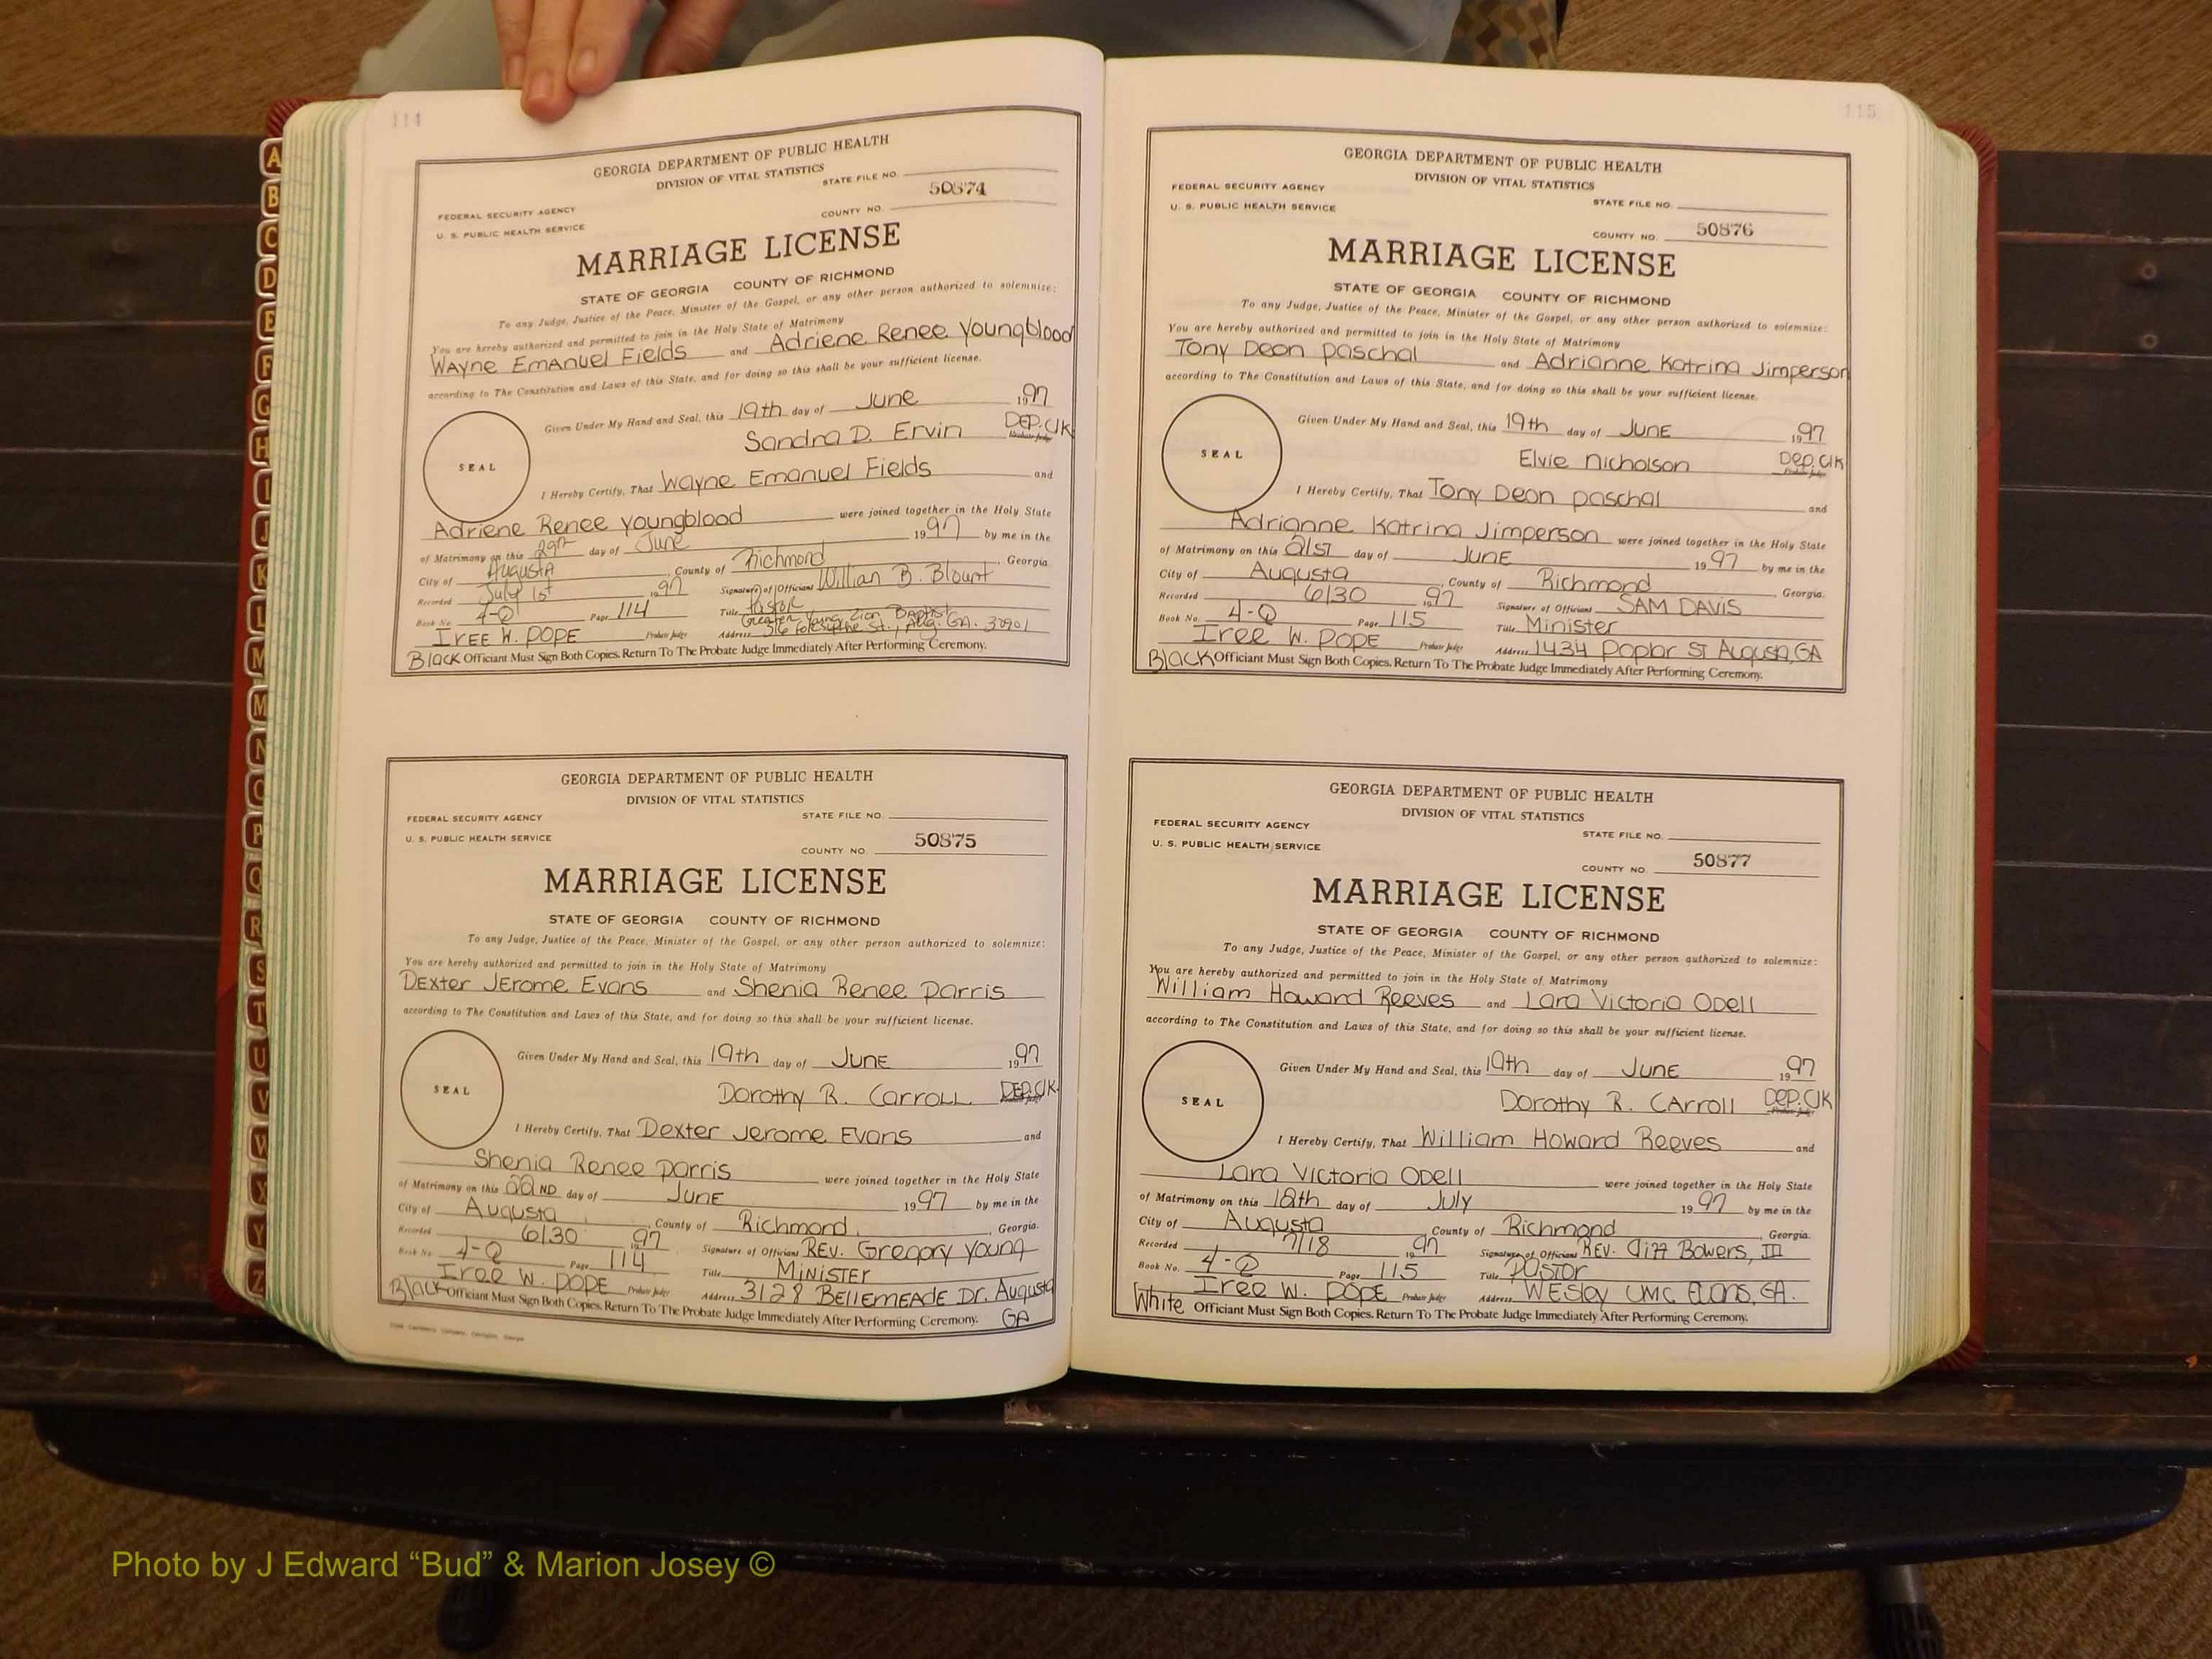 114
GEORGIA DEPARTMENT OF PUBLIC HEALTH
DIVISION OF VITAL STATISTICS
STATE FILE NO.
FEDERAL SECURITY AGENCY
50874
U. S. PUBLIC HEALTH SERVICE
COUNTY NO.
MARRIAGE LICENSE
STATE OF GEORGIA COUNTY OF RICHMOND
To any Judge, Justice of the Peace, Minister of the Gospel, or any other person authorized to solemnize:
You are hereby authorized and permitted to join in the Holy State of Matrimony
Wayne Emanuel Fields and Adriene Renee Youngblood
according to The Constitution and Laws of this State, and for doing so this shall be your sufficient license.
Given Under My Hand and Seal, this 19th day of June 1997
Sandra D. Ervin DEP. Clk
Probate Judge
SEAL
I Hereby Certify, That Wayne Emanuel Fields and
Adriene Renee Youngblood were joined together in the Holy State
of Matrimony on this 29th day of June 1997 by me in the
City of Augusta County of Richmond, Georgia
Recorded July 1st 1997 Signature of Official Willian B. Blount
Book No. 4-Q Page 114 Title Pastor
Greater Young Zion Baptist
Iree W. Pope Probate Judge Address St., Aug. GA. 30901
Black Officiant Must Sign Both Copies. Return To The Probate Judge Immediately After Performing Ceremony.
GEORGIA DEPARTMENT OF PUBLIC HEALTH
DIVISION OF VITAL STATISTICS
FEDERAL SECURITY AGENCY
STATE FILE NO.
U. S. PUBLIC HEALTH SERVICE
50875
COUNTY NO.
MARRIAGE LICENSE
STATE OF GEORGIA COUNTY OF RICHMOND
To any Judge, Justice of the Peace, Minister of the Gospel, or any other person authorized to solemnize:
You are hereby authorized and permitted to join in the Holy State of Matrimony
Dexter Jerome Evans and Shenia Renee Parris
according to The Constitution and Laws of this State, and for doing so this shall be your sufficient license.
Given Under My Hand and Seal, this 19th day of June 1997
Dorothy R. Carroll DEP. Clk.
Probate Judge
SEAL
I Hereby Certify, That Dexter Jerome Evans and
Shenia Renee Parris were joined together in the Holy State
of Matrimony on this 22ND day of June 1997 by me in the
City of Augusta, County of Richmond, Georgia.
Recorded 6/30 1997 Signature of Official REV. Gregory Young
Book No. 4-Q Page 114 Title Minister
Iree W. Pope Probate Judge Address 3128 Bellemeade Dr. Augusta
GA
Black Officiant Must Sign Both Copies. Return To The Probate Judge Immediately After Performing Ceremony.
115
GEORGIA DEPARTMENT OF PUBLIC HEALTH
DIVISION OF VITAL STATISTICS
FEDERAL SECURITY AGENCY
STATE FILE NO.
U. S. PUBLIC HEALTH SERVICE
50876
COUNTY NO.
MARRIAGE LICENSE
STATE OF GEORGIA COUNTY OF RICHMOND
To any Judge, Justice of the Peace, Minister of the Gospel, or any other person authorized to solemnize:
You are hereby authorized and permitted to join in the Holy State of Matrimony
Tony Deon Paschal and Adrianne Katrina Jimperson
according to The Constitution and Laws of this State, and for doing so this shall be your sufficient license.
Given Under My Hand and Seal, this 19th day of June 1997
Elvie Nicholson DEP. Clk
Probate Judge
SEAL
I Hereby Certify, That Tony Deon Paschal and
Adrianne Katrina Jimperson were joined together in the Holy State
of Matrimony on this 21ST day of June 1997 by me in the
City of Augusta, County of Richmond, Georgia.
Recorded 6/30 1997 Signature of Official SAM DAVIS
Book No. 4-Q Page 115 Title Minister
Iree W. Pope Probate Judge Address 1434 Poplar St Augusta, GA
Black Officiant Must Sign Both Copies. Return To The Probate Judge Immediately After Performing Ceremony.
GEORGIA DEPARTMENT OF PUBLIC HEALTH
DIVISION OF VITAL STATISTICS
FEDERAL SECURITY AGENCY
STATE FILE NO.
U. S. PUBLIC HEALTH SERVICE
50877
COUNTY NO.
MARRIAGE LICENSE
STATE OF GEORGIA COUNTY OF RICHMOND
To any Judge, Justice of the Peace, Minister of the Gospel, or any other person authorized to solemnize:
You are hereby authorized and permitted to join in the Holy State of Matrimony
William Howard Reeves and Lara Victoria Odell
according to The Constitution and Laws of this State, and for doing so this shall be your sufficient license.
Given Under My Hand and Seal, this 19th day of June 1997
Dorothy R. Carroll DEP. Clk
Probate Judge
SEAL
I Hereby Certify, That William Howard Reeves and
Lara Victoria Odell were joined together in the Holy State
of Matrimony on this 12th day of July 1997 by me in the
City of Augusta County of Richmond, Georgia.
Recorded 7/18 1997 Signature of Official REV. Bowers, III
Book No. 4-Q Page 115 Title Pastor
Iree W. Pope Probate Judge Address Wesley UMC Evans, GA.
White Officiant Must Sign Both Copies. Return To The Probate Judge Immediately After Performing Ceremony.
A
B
C
D
E
F
G
H
I
J
K
L
M
M
N
O
P
Q
R
S
T
U
V
W
X
Y
Z
Photo by J Edward “Bud” & Marion Josey ©